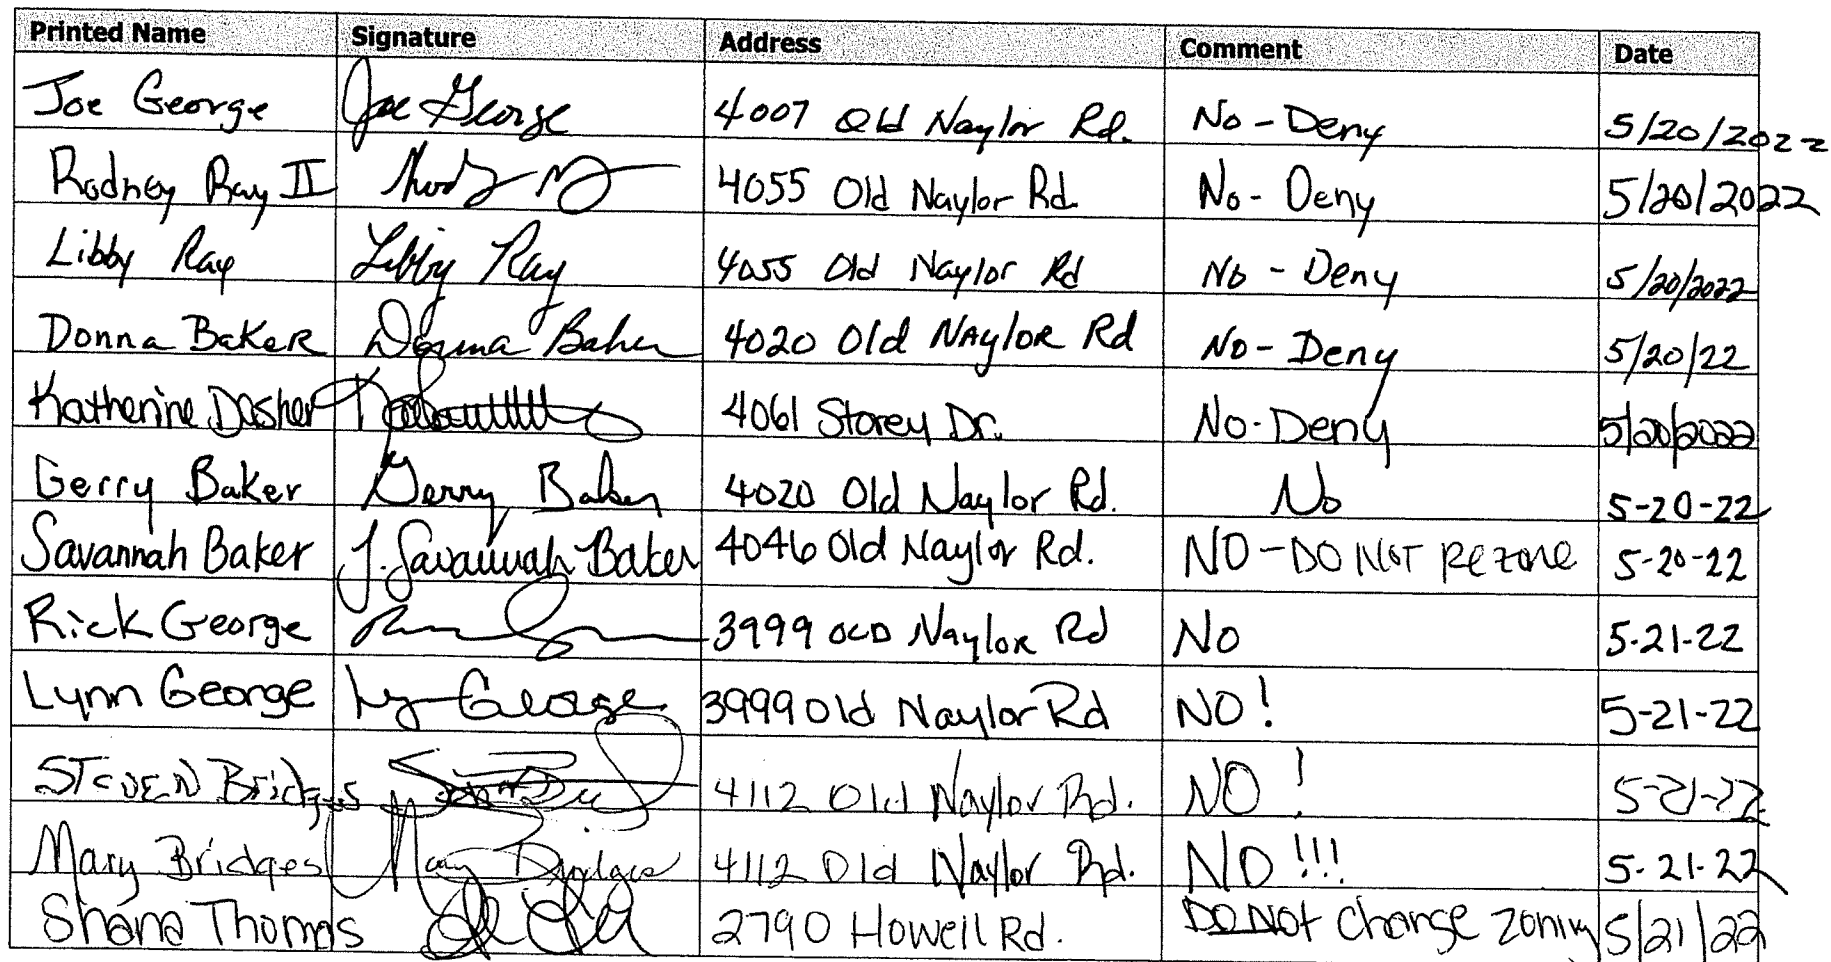 Printed Name Signature Address Comment Date
Joe George Joe George 4007 Old Naylor Rd. No - Deny 5/20/2022
Rodney Ray II 4055 Old Naylor Rd. No - Deny 5/20/2022
Libby Ray Libby Ray 4055 Old Naylor Rd No - Deny 5/20/2022
Donna BakeR Donna Baker 4020 Old NAyloR Rd No - Deny 5/20/22
Katherine Dasher 4061 Storey Dr. No - Deny 5/20/2022
Gerry Baker Gerry Baker 4020 Old Naylor Rd. No 5-20-22
Savannah Baker J. Savannah Baker 4046 Old Naylor Rd. NO - DO NOT Rezone 5-20-22
Rick George 3999 OLD Naylor Rd No 5-21-22
Lynn George Lyn George 3999 Old Naylor Rd NO! 5-21-22
STEVEN Bridges 4112 Old Naylor Rd. NO! 5-21-22
Mary Bridges Mary Bridges 4112 Old Naylor Rd. NO!!! 5-21-22
Shana Thomas 2790 Howell Rd. DO NOT change zoning 5/21/22